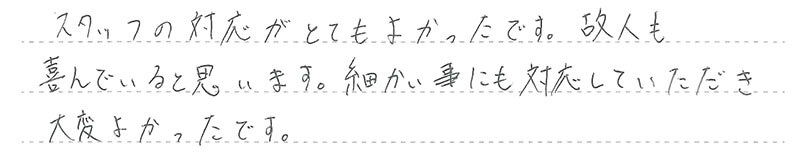 スタッフの対応がとてもよかったです。故人も
喜んでいると思います。細かい事にも対応していただき
大変よかったです。